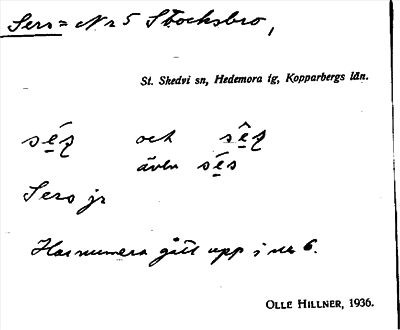 Sers = Nr 5 Stocksbro,
St. Skedvi sn, Hedemora tg, Kopparbergs län.
och
även sés
Sers jr
Har numera gått upp i nr 6.
OLLE HILLNER, 1936.